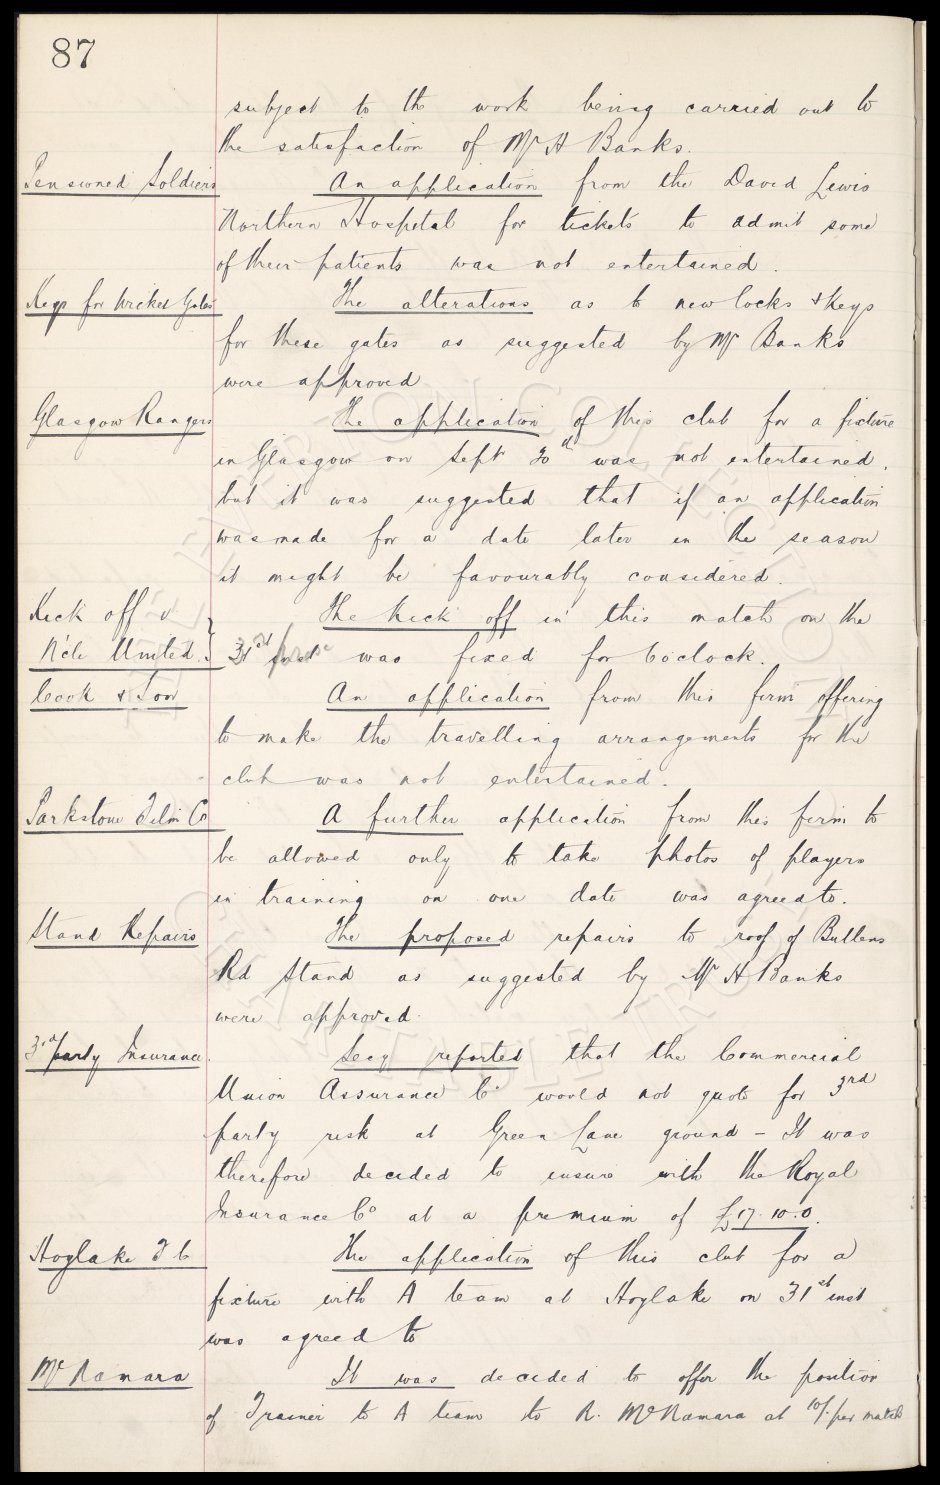 87
subject to the work being carried out to
the satisfaction of Mr H Banks.
Pensioned Soldiers An application from the David Lewis
Northern Hospital for tickets to admit some
of their patients was not entertained.
Keys for Wicket Gates The alterations as to new locks & Keys
for these gates as suggested by Mr Banks
were approved
Glasgow Rangers The application of this club for a fixture
in Glasgow on Sept 30th was not entertained.
but it was suggested that if an application
was made for a date later in the season
it might be favourably considered.
Kick off v The Kick off in this match on the
N'cle United. 31st was fixed for 6 oclock.
Cook & Son An application from this firm offering
to make the travelling arrangements for the
club was not entertained.
Parkstone Film Co A further application from this firm to
be allowed only to take photos of players
in training on one date was agreed to.
Stand Repairs The proposed repairs to roof of Bullens
Rd Stand as suggested by Mr H Banks
were approved.
3rd party Insurance. Secy reported that the Commercial
Union Assurance Co would not quote for 3rd
party risk at Green Lane ground - It was
therefore decided to insure with the Royal
Insurance Co at a premium of £17.10.0.
Hoylake F C The application of this club for a
fixture with A team at Hoylake on 31st inst
was agreed to
McNamara It was decided to offer the position
of Trainer to A team to R. McNamara at 10/- per match